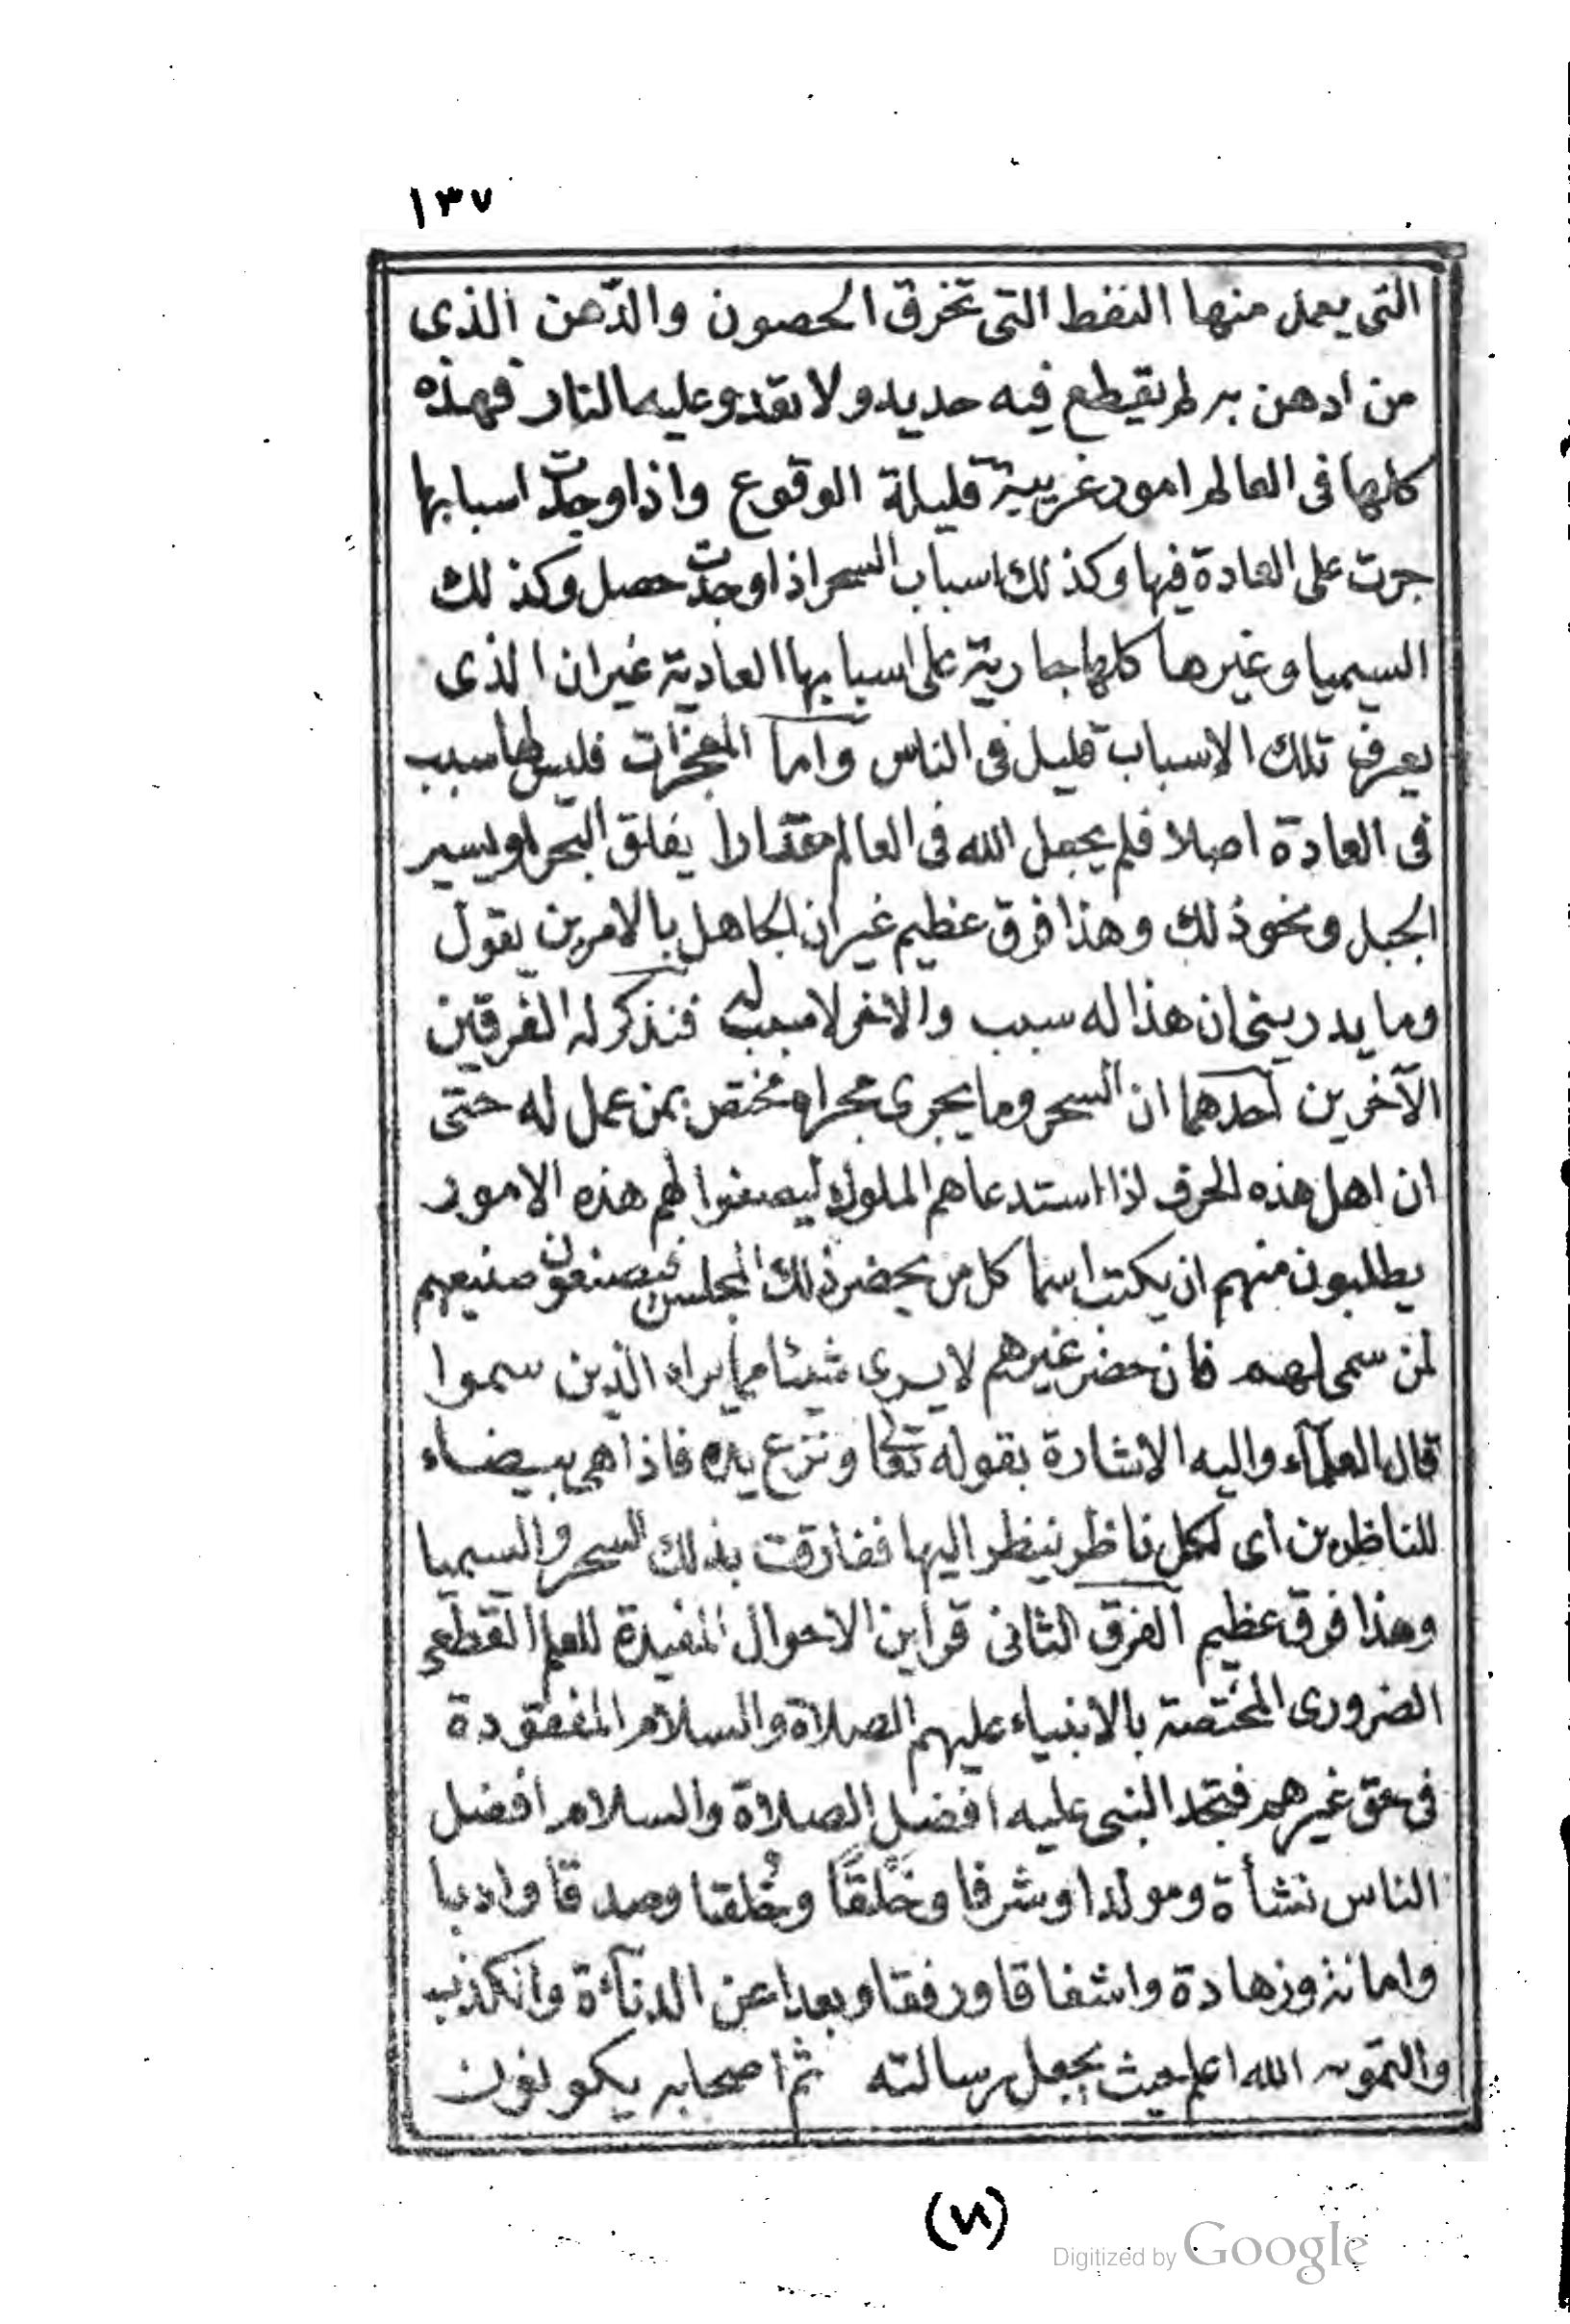 ١٣٧
التى يعمل منها النفط التى تخرق الحصون والدّهن الذى
من ادهن به لم يقطع فيه حديد ولا تعدو عليه النار فهذه
كلها فى العالم امور غريبة قليلة الوقوع واذا وجدت اسبابها
جرت على العادة فيها وكذلك اسباب السحر اذا وجدت حصل وكذلك
السيميا وغيرها كلها جارية على اسبابها العادية غير ان الذى
يعرف تلك الاسباب قليل فى الناس واما المعجزات فليس لها سبب
فى العادة اصلا فلم يجعل الله فى العالم عقارا يفلق البحر او يسير
الجبل ونحو ذلك وهذا فرق عظيم غير ان الجاهل بالامرين يقول
وما يدرينى ان هذا له سبب والاخر لا سبب له فنذكر له الفرقين
الآخرين احدهما ان السحر وما يجرى مجراه مختص بمن عمل له حتى
ان اهل هذه الحرف اذا استدعاهم الملوك ليصنعوا لهم هذه الامور
يطلبون منهم ان يكتب اسما كل من يحضر ذلك المجلس فيصنعون صنيعهم
لمن سمى لهم فان حضر غيرهم لا يرى شيئا مما يراه الذين سموا
قال العلمآء واليه الاشارة بقوله تعالى ونزع يده فاذا هى بيضاء
للناظرين اى لكل ناظر ينظر اليها ففارقت بذلك السحر والسيميا
وهذا فرق عظيم الفرق الثانى قراين الاحوال المفيدة للعلم القطعى
الضرورى المختصة بالانبياء عليهم الصلاة والسلام المفقودة
فى حق غيرهم فتجد النبى عليه افضل الصلاة والسلام افضل
الناس نشأة ومولدا وشرفا وخَلقًا وخُلقا وصدقا وادبا
وامانة وزهادة واشفاقا ورفقا وبعدا عن الدنآئة والكذب
والتمويه الله اعلم حيث يجعل رسالته ثم اصحابه يكونون
Digitized by Google